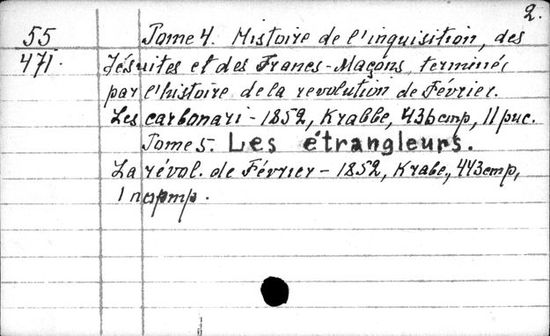 2.
55 Tome 4. Histoire de l'inquisition, des
471. Jésuites et des Francs-Maçons, terminée
par l'histoire de la revolution de Février.
Les carbonari - 1852, Krabbe, 436 стр, 11 рис.
Tome 5. Les étrangleurs.
La révol. de Février - 1852, Krabe, 443 стр,
1 стр.